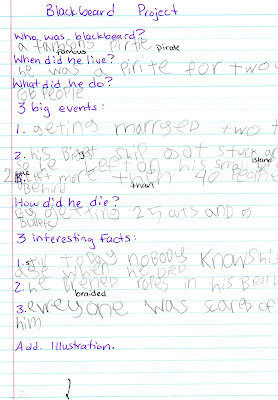 Blackbeard Project
Who was blackbeard?
a famous pirtie pirate
When did he live?
he was a pirite for two
What did he do?
rob People
3 big events:
1. geting marryed two t
2. his Biggest ship got stuck
on his small island
more than 40 People
than
Behind
How did he die?
By getting 25 cuts and 5
Bullets
3 interesting facts:
1. still today nobody knows his
age when he DIED
2. he ropes in his Beard
braided
3. evreyone was scared of
him
Add. Illustration.